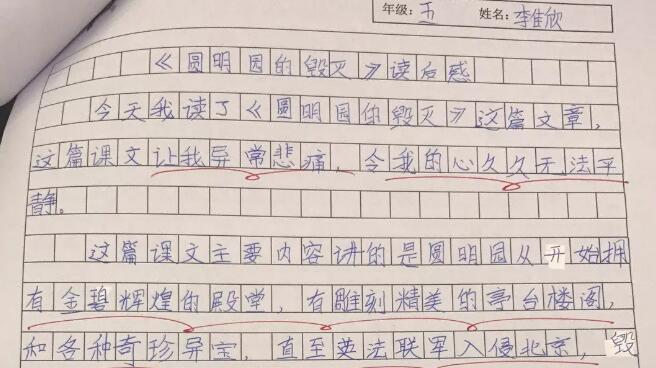 年级：五 姓名：李佳欣
《圆明园的毁灭》读后感
今天我读了《圆明园的毁灭》这篇文章，
这篇课文让我异常悲痛，令我的心久久无法平
静。
这篇课文主要内容讲的是圆明园从开始拥
有金碧辉煌的殿堂，有雕刻精美的亭台楼阁，
和各种奇珍异宝，直至英法联军入侵北京，毁